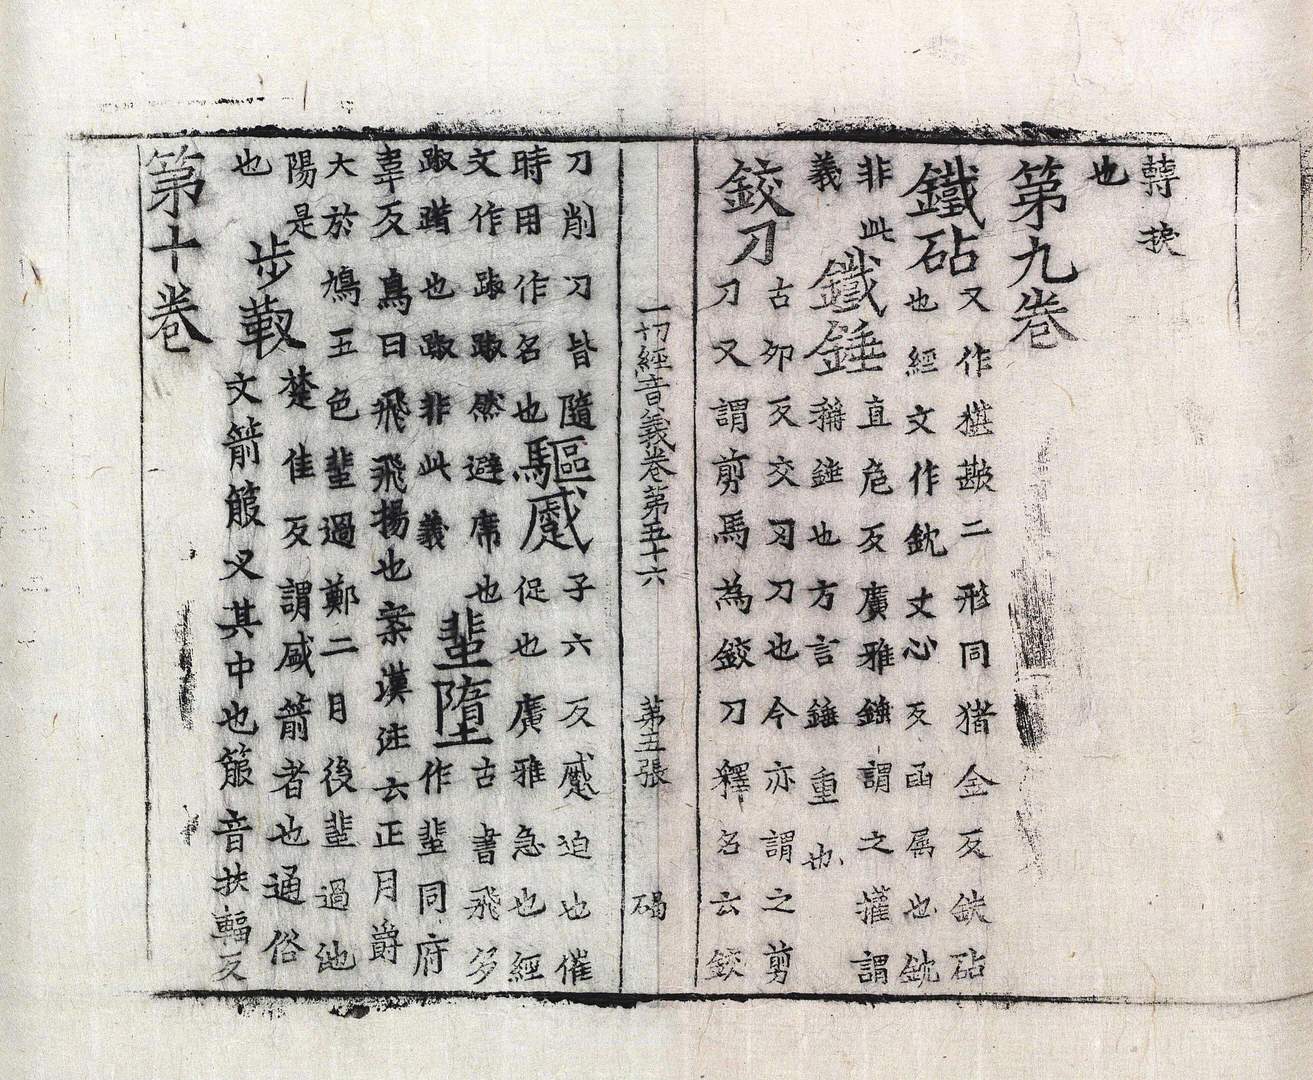 轉挨
也
第九卷
鐵砧又作椹㪛二形同猪金反鈇砧
也經文作鈂丈心反臿属也鈂
非此
義
鐵錘直危反廣雅錘謂之權謂
稱錘也方言錘重也
鉸刀古卯反交刃刀也今亦謂之剪
刀又謂剪馬為鉸刀釋名云鉸
一切經音義卷第五十六 第五張 碣
刀削刀皆隨
時用作名也
驅蹙子六反蹙迫也催
促也廣雅急也經
文作踧踧然避席也
踧踖也踧非此義
蜚墮古書飛多
作蜚同府
韋反鳥曰飛飛揚也案漢注云正月爵
大於鳩五色蜚過鄭二月後蜚過池
陽是
也
步靫楚佳反謂盛箭者也通俗
文箭箙叉其中也箙音扶輻反
第十卷